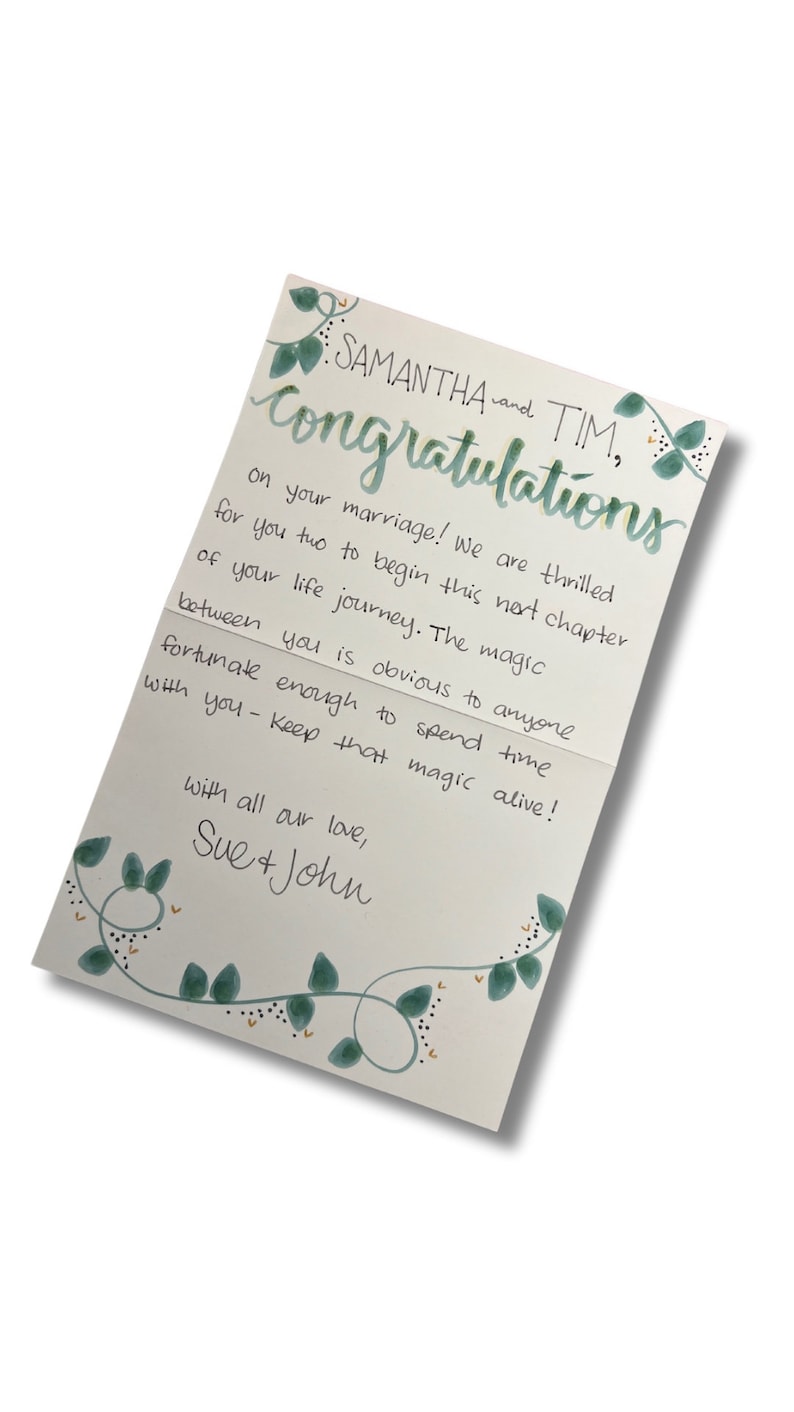 SAMANTHA and TIM,
congratulations
on your marriage! We are thrilled
for you two to begin this next chapter
of your life journey. The magic
between you is obvious to anyone
fortunate enough to spend time
with you - Keep that magic alive!
with all our love,
Sue + John